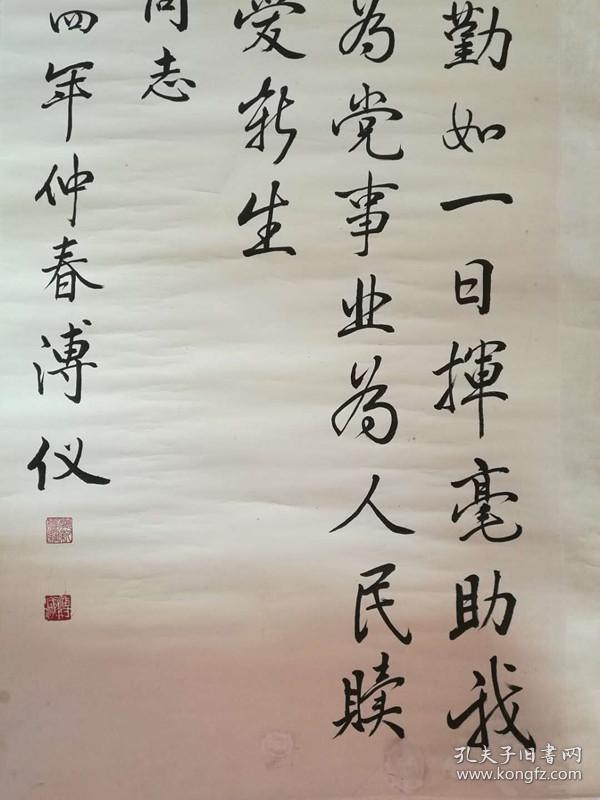 勤如一日揮毫助我
为党事业为人民赎
爱新生
同志
四年仲春溥仪
孔夫子旧书网
www.kongfz.com